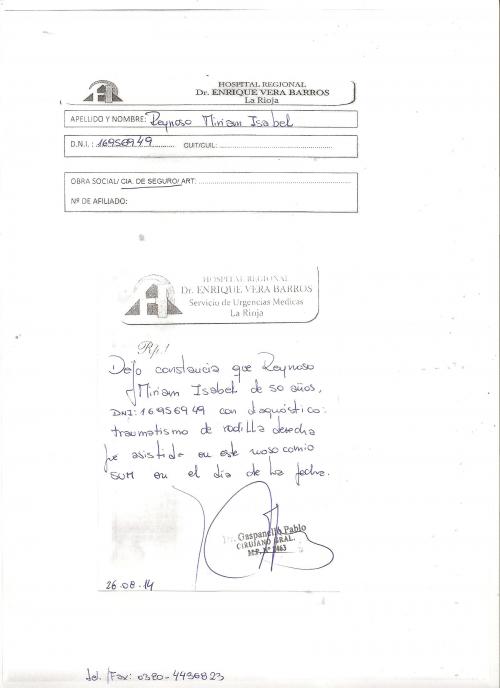 HOSPITAL REGIONAL
Dr. ENRIQUE VERA BARROS
La Rioja
APELLIDO Y NOMBRE: Reynoso Miriam Isabel
D.N.I. : 16956949 CUIT/CUIL:
OBRA SOCIAL/ CIA. DE SEGURO/ ART:
Nº DE AFILIADO:
HOSPITAL REGIONAL
Dr. ENRIQUE VERA BARROS
Servicio de Urgencias Medicas
La Rioja
Rp./
Dejo constancia que Reynoso
Miriam Isabel de 50 años,
DNI: 16956949 con diagnóstico:
traumatismo de rodilla derecha
fue asistida en este nosocomio
SUM en el día de la fecha.
Dr. Gaspanello Pablo
CIRUJANO GRAL.
M.P. Nº 2463
26.08.14
tel. /Fax: 0380-4496823